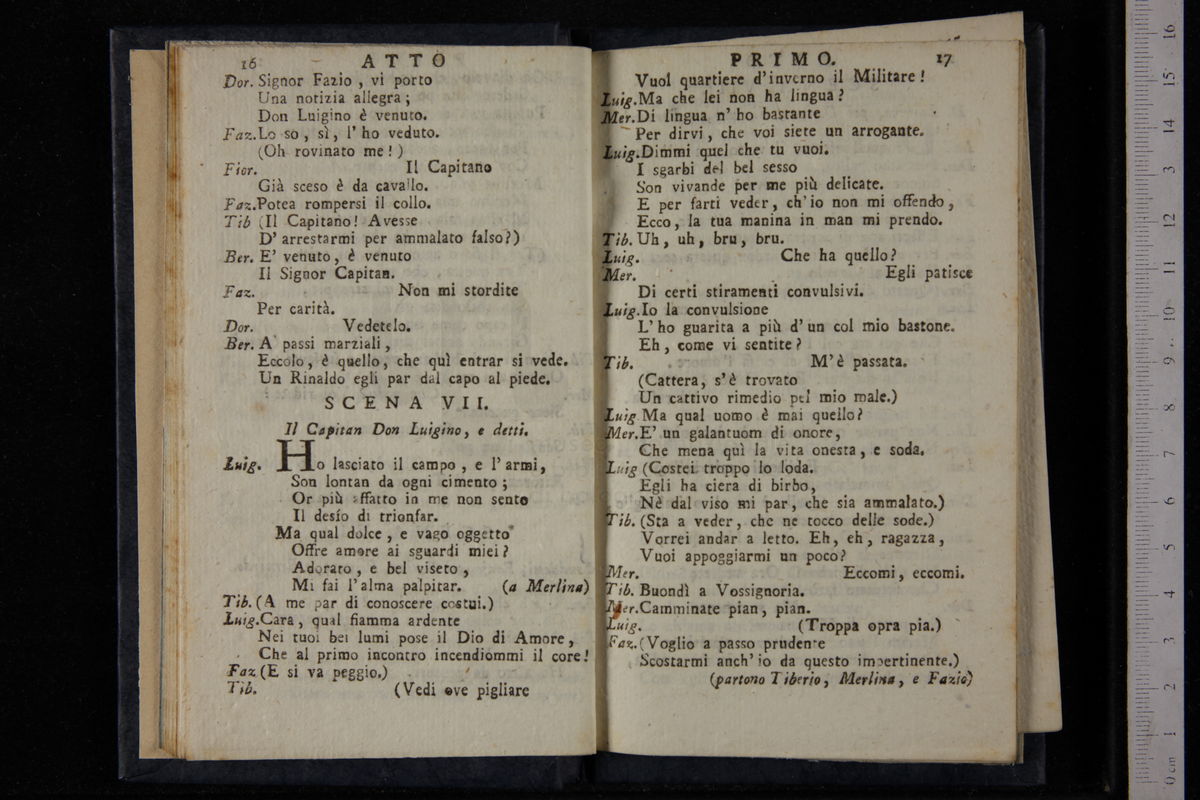 16 ATTO
Dor. Signor Fazio , vi porto
Una notizia allegra ;
Don Luigino è venuto.
Faz. Lo so , sì , l' ho veduto.
(Oh rovinato me ! )
Fior. Il Capitano
Già sceso è da cavallo.
Faz. Potea rompersi il collo.
Tib (Il Capitano! Avesse
D' arrestarmi per ammalato falso?)
Ber. E' venuto, è venuto
Il Signor Capitan.
Faz. Non mi stordite
Per carità.
Dor. Vedetelo.
Ber. A passi marziali ,
Eccolo, è quello, che quì entrar si vede.
Un Rinaldo egli par dal capo al piede.
SCENA VII.
Il Capitan Don Luigino, e detti.
Luig. Ho lasciato il campo , e l' armi,
Son lontan da ogni cimento ;
Or più affatto in me non sento
Il desío di trionfar.
Ma qual dolce , e vago oggetto
Offre amore ai sguardi miei ?
Adorato , e bel viseto ,
Mi fai l'alma palpitar. (a Merlina)
Tib. (A me par di conoscere costui.)
Luig. Cara, qual fiamma ardente
Nei tuoi bei lumi pose il Dio di Amore,
Che al primo incontro incendiommi il core!
Faz (E si va peggio.)
Tib. (Vedi ove pigliare
PRIMO. 17
Vuol quartiere d'inverno il Militare !
Luig. Ma che lei non ha lingua ?
Mer. Di lingua n' ho bastante
Per dirvi , che voi siete un arrogante.
Luig. Dimmi quel che tu vuoi.
I sgarbi del bel sesso
Son vivande per me più delicate.
E per farti veder, ch'io non mi offendo ,
Ecco, la tua manina in man mi prendo.
Tib. Uh, uh, bru, bru.
Luig. Che ha quello?
Mer. Egli patisce
Di certi stiramenti convulsivi.
Luig. Io la convulsione
L' ho guarita a più d' un col mio bastone.
Eh, come vi sentite ?
Tib. M'è passata.
(Cattera, s'è trovato
Un cattivo rimedio pel mio male.)
Luig Ma qual uomo è mai quello?
Mer. E' un galantuom di onore,
Che mena quì la vita onesta , e soda.
Luig (Costei troppo lo loda.
Egli ha ciera di birbo,
Nè dal viso mi par, che sia ammalato.)
Tib. (Sta a veder, che ne tocco delle sode.)
Vorrei andar a letto. Eh, eh, ragazza,
Vuoi appoggiarmi un poco?
Mer. Eccomi, eccomi.
Tib. Buondì a Vossignoria.
Mer. Camminate pian, pian.
Luig. (Troppa opra pia.)
Faz. (Voglio a passo prudente
Scostarmi anch' io da questo impertinente.)
(partono Tiberio, Merlina, e Fazio)
0 cm 1 2 3 4 5 6 7 8 9 10 11 12 13 14 15 16